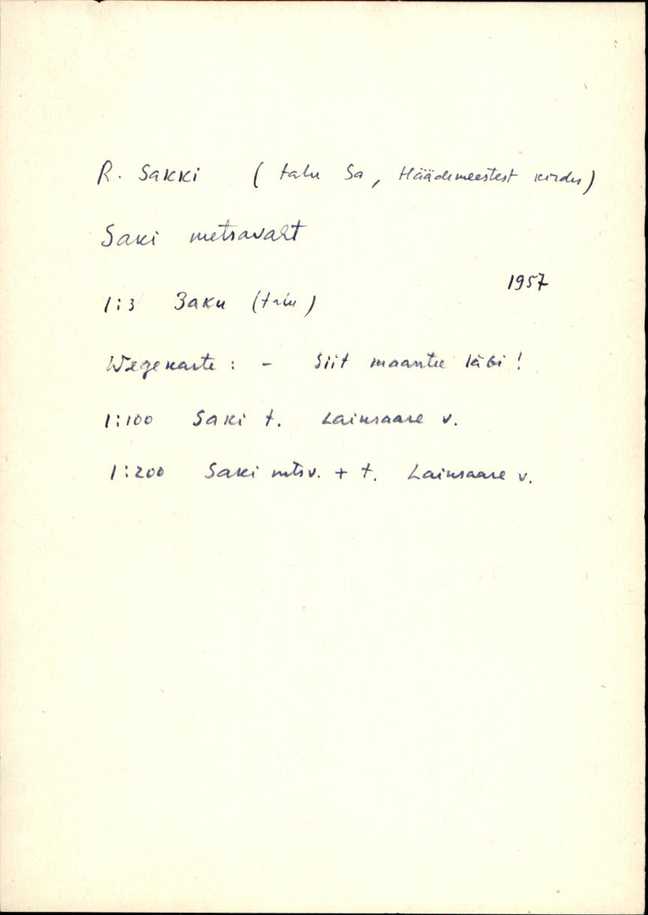 R. Sakki ( talu Sa, Häädemeestest kirdu)
Saki metsavaht
1957
1:3 Заки (talu)
Wegekarte : - Siit maantee läbi !
1:100 Saki t. Laiksaare v.
1:200 Saki mtsv. + t. Laiksaare v.